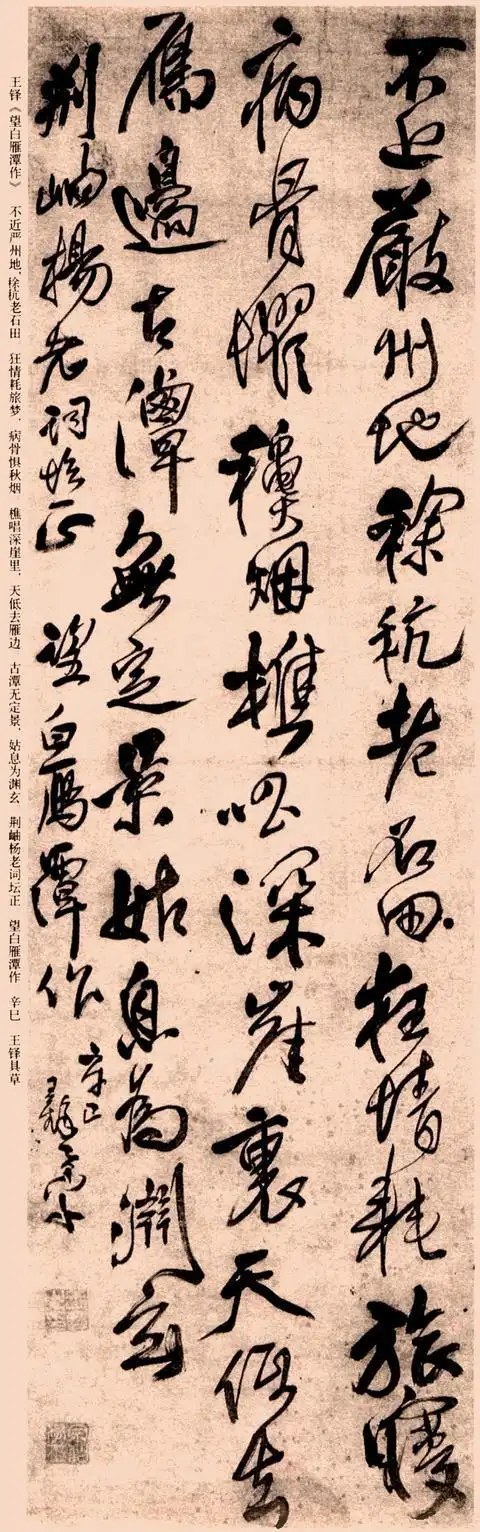 不近嚴州地稌秔老石田狂情耗旅夢
病骨懼龝烟樵唱深崖裏天低去
鴈邉古潭無定景姑息為淵玄
荆岫楊老詞壇正 望白鴈潭作 辛巳 王鐸具草
王铎《望白雁潭作》 不近严州地，稌杭老石田 狂情耗旅梦，病骨惧秋烟 樵唱深崖里，天低去雁边 古潭无定景，姑息为渊玄 荆岫杨老词坛正 望白雁潭作 辛巳 王铎具草